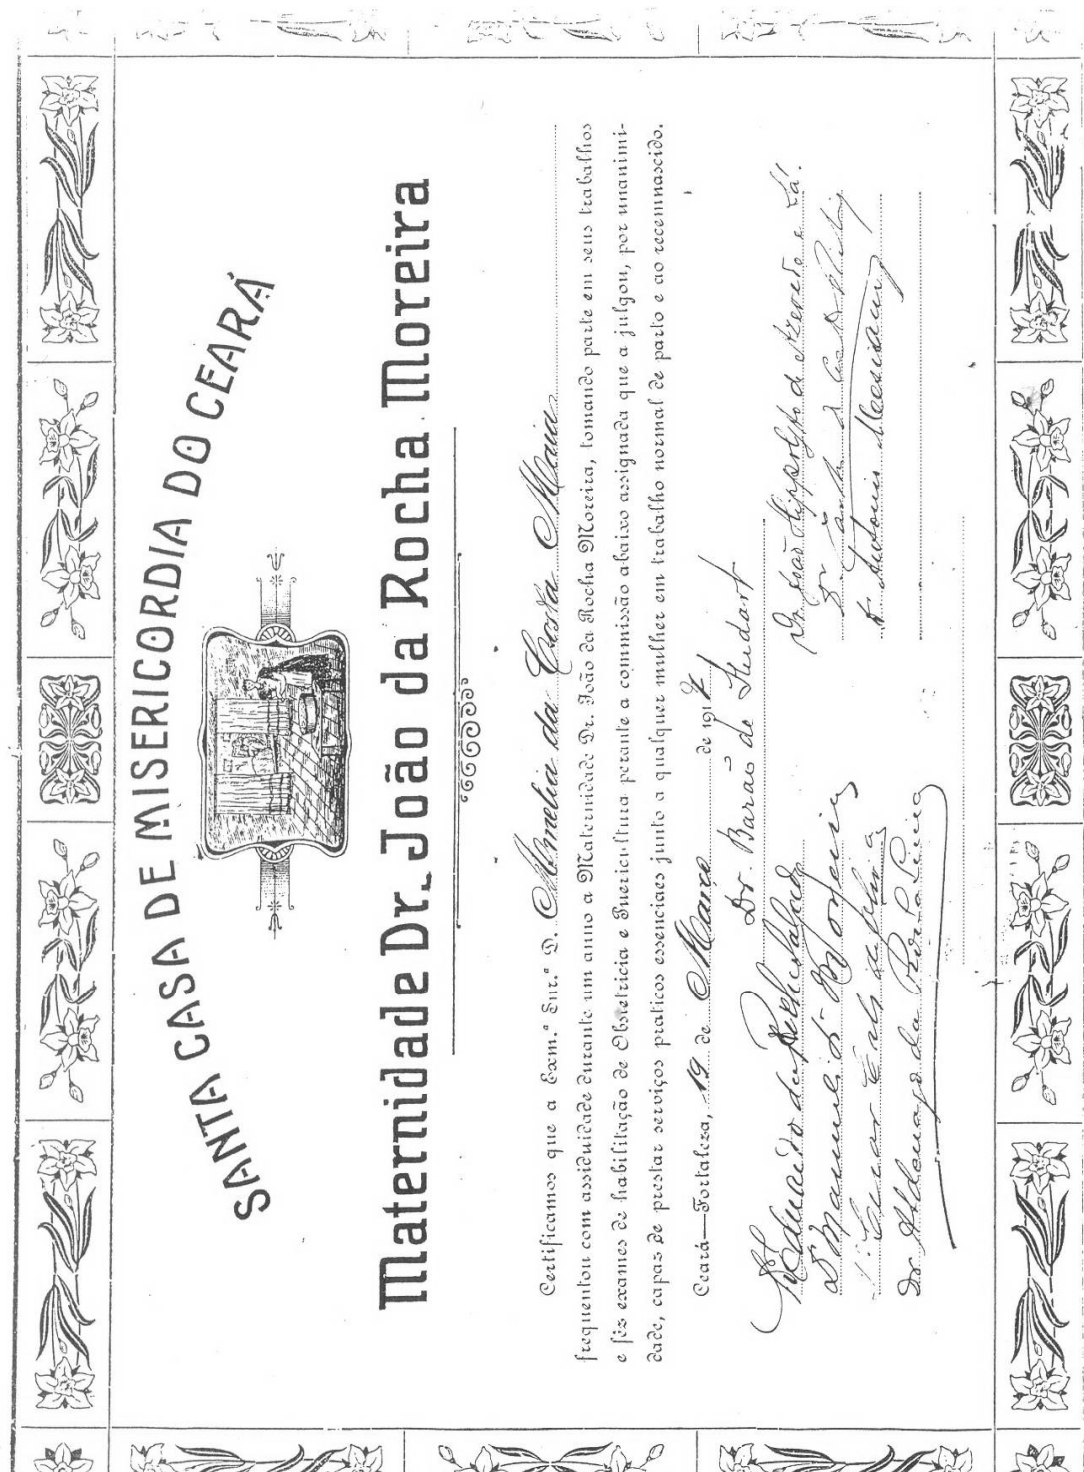 SANTA CASA DE MISERICORDIA DO CEARÁ
Maternidade Dr. João da Rocha Moreira
Certificamos que a Exm.ª Snr.ª D. Amelia da Costa Maia
frequentou com assiduidade durante um anno a Maternidade Dr. João da Rocha Moreira, tomando parte em seus trabalhos
e fez exames de habilitação de Obstetricia e Puericultura perante a commissão abaixo assignada que a julgou, por unanimi-
dade, capaz de prestar serviços praticos essenciaes junto a qualquer mulher em trabalho normal de parto e ao recemnascido.
Ceará—Fortaleza, 19 de Março de 191
Dr. Barão de Studart
Eduardo da Rocha Salgado
Dr. João Hippolyto de Azevedo e Sá.
Dr. Manuel
Dr. Cesar
Antonio
Dr.